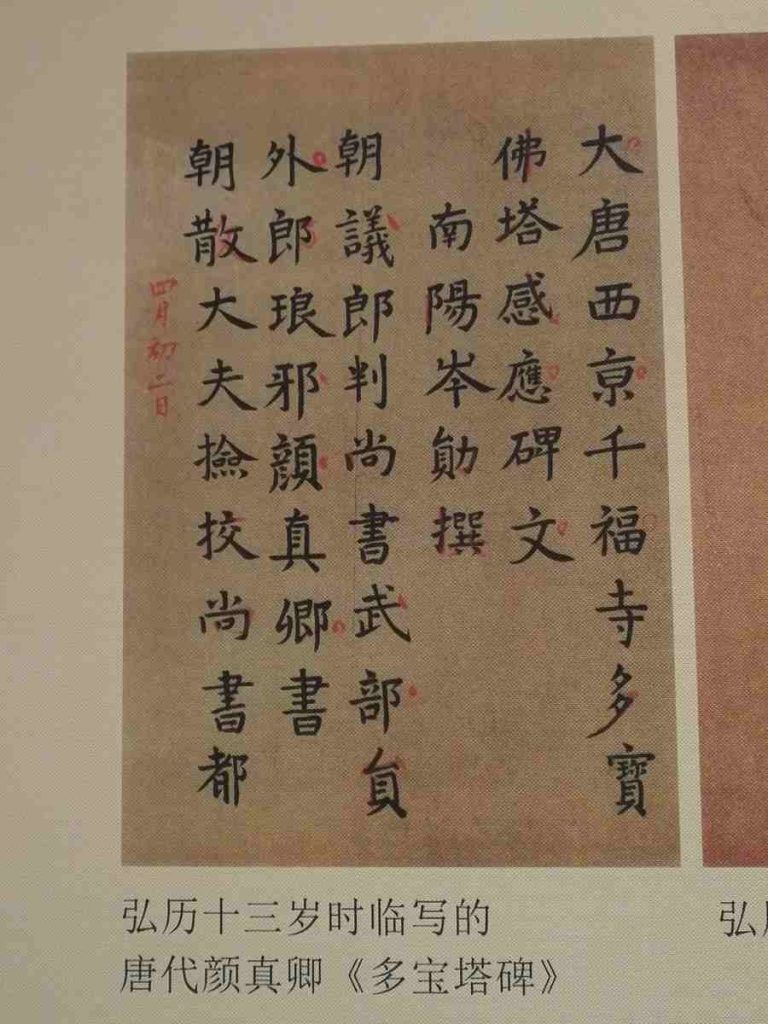 大唐西京千福寺多寶
佛塔感應碑文
南陽岑勛撰
朝議郎判尚書武部貟
外郎琅邪顏真卿書
朝散大夫撿挍尚書都
四月初二日
弘历十三岁时临写的
唐代颜真卿《多宝塔碑》
弘